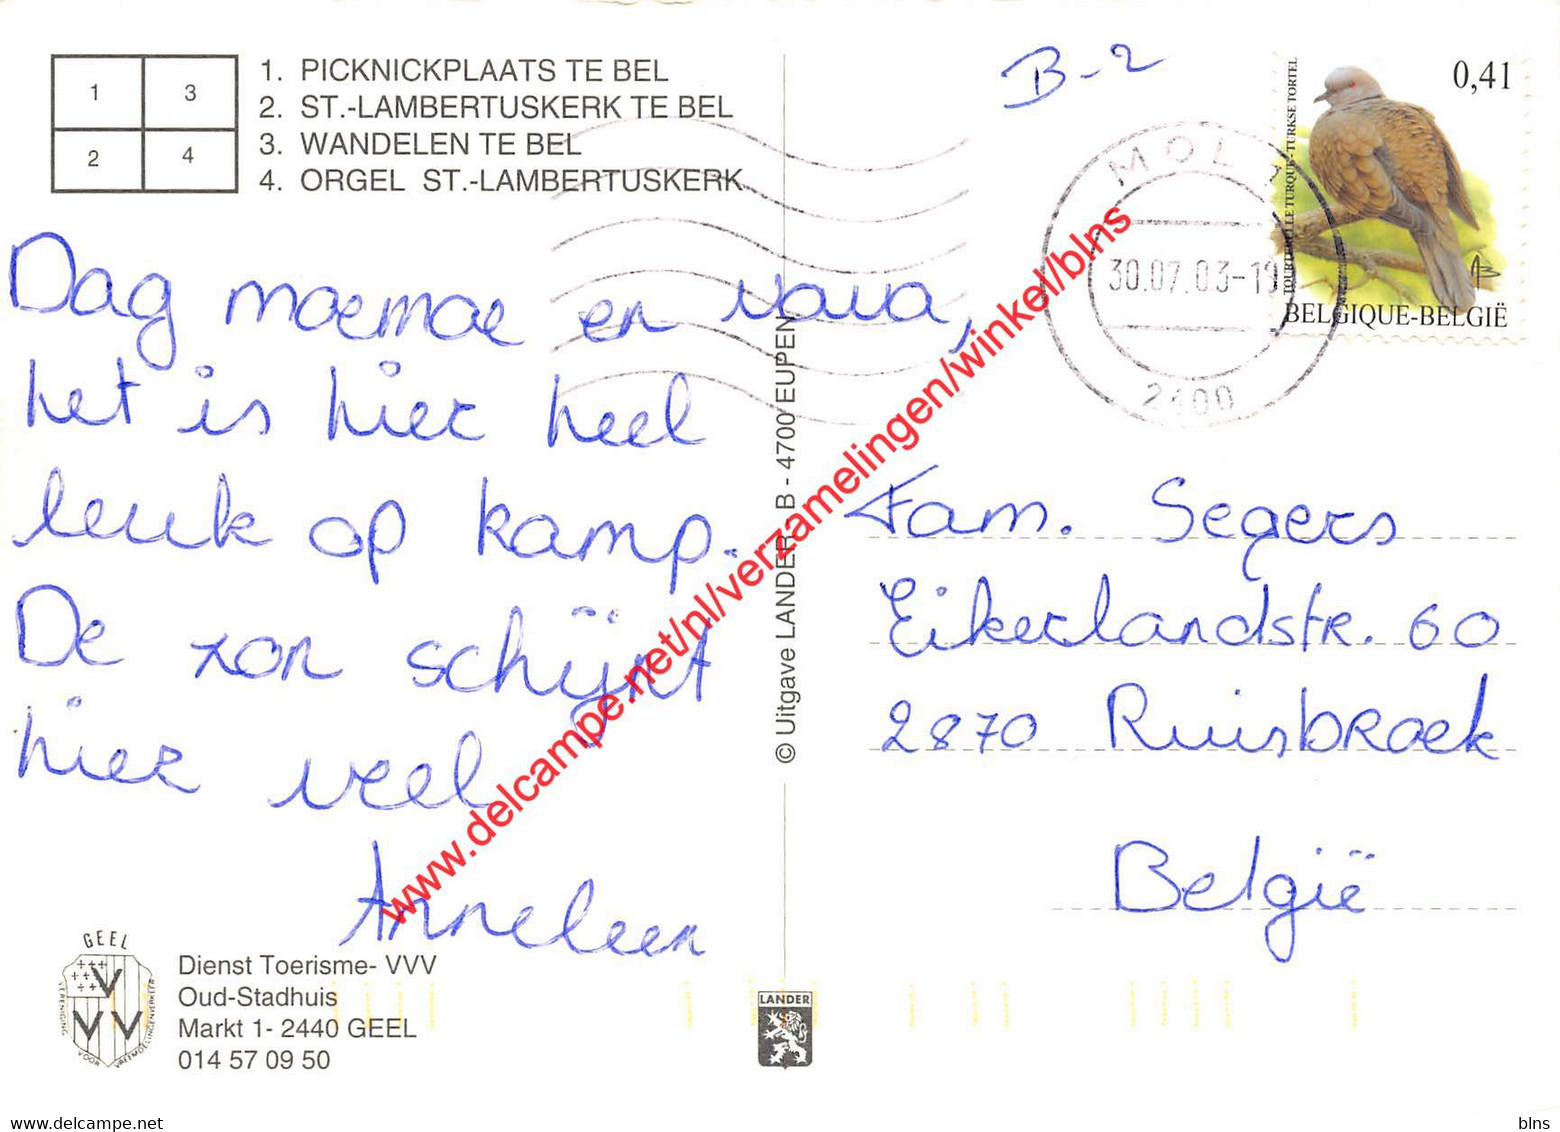 1 3
2 4
1. PICKNICKPLAATS TE BEL
2. ST.-LAMBERTUSKERK TE BEL
3. WANDELEN TE BEL
4. ORGEL ST.-LAMBERTUSKERK
B-2
0,41
TOURTERELLE TURQUE-TURKSE TORTEL
AB
BELGIQUE-BELGIË
MOL 1
30.07.03-19
2400
Dag moemoe en vava,
het is hier heel
leuk op kamp.
De zon schijnt
hier veel
Anneleen
Fam. Segers
Eikerlandstr. 60
2870 Ruisbroek
België
© Uitgave LANDER B - 4700 EUPEN
www.delcampe.net/nl/verzamelingen/winkel/blns
GEEL
VVV
VERENIGING VOOR VREEMDELINGENVERKEER
Dienst Toerisme- VVV
Oud-Stadhuis
Markt 1- 2440 GEEL
014 57 09 50
LANDER
www.delcampe.net
blns